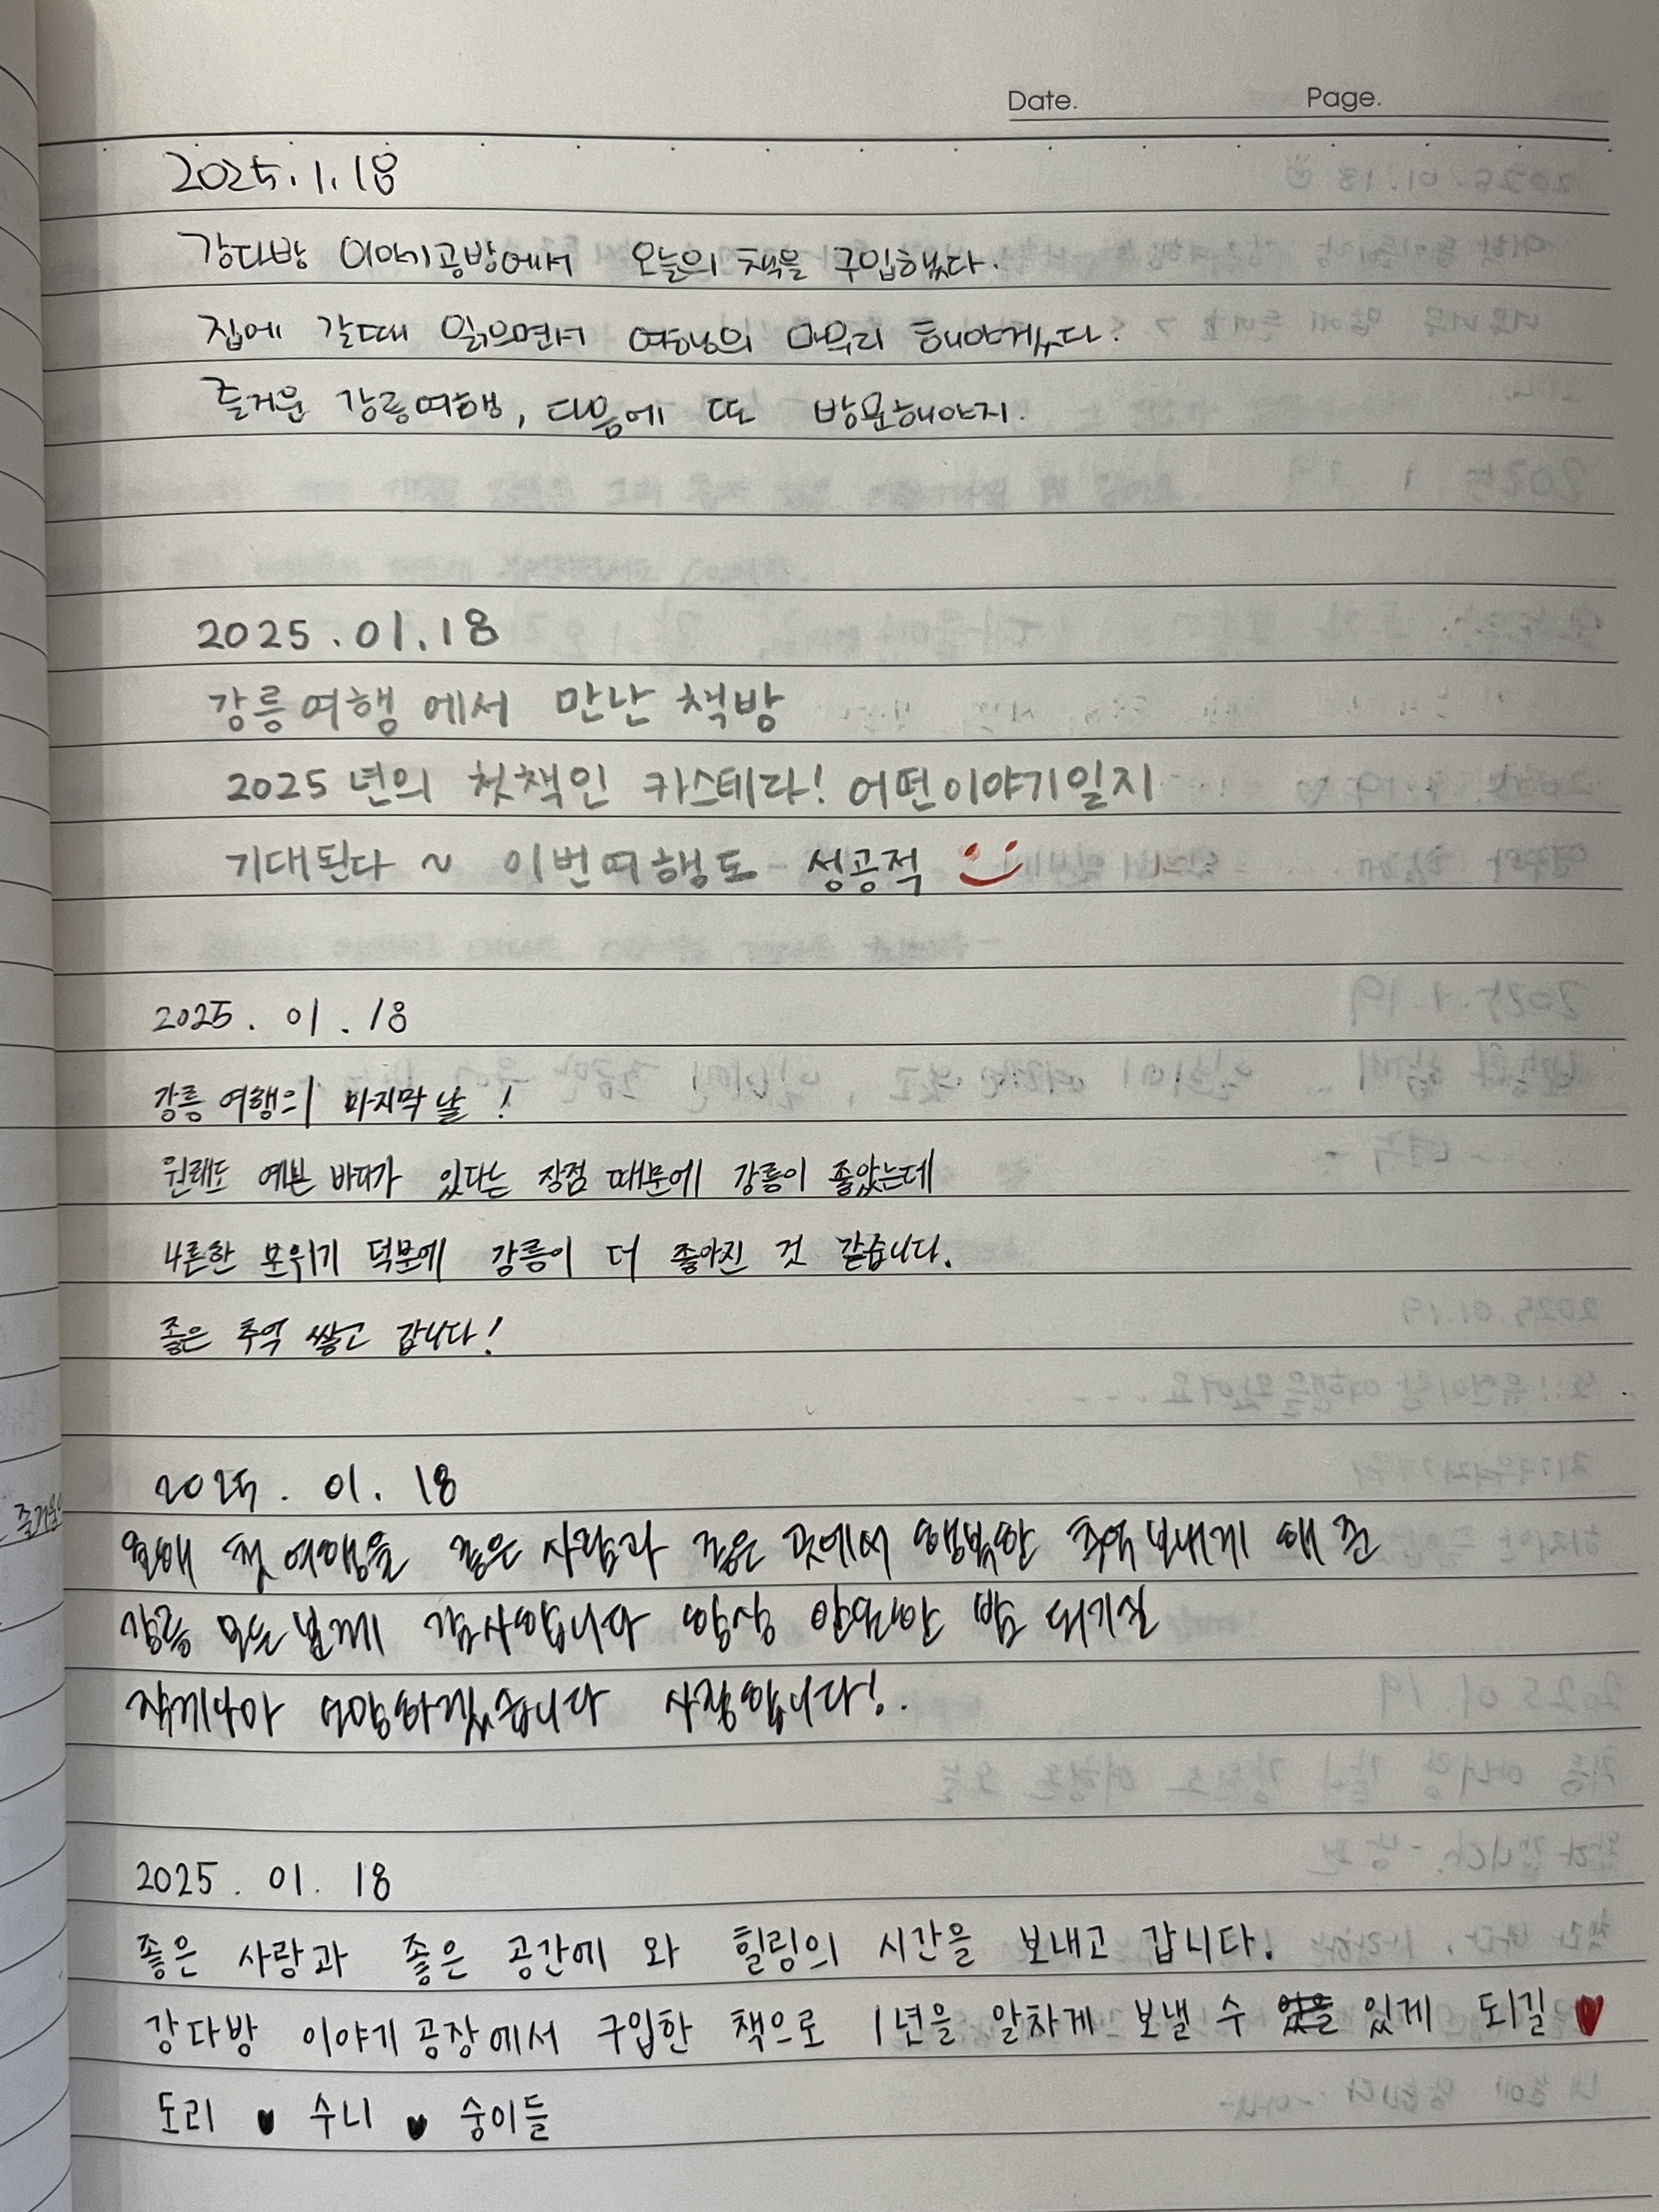 Date. Page.
2025.1.18
강다방 이야기공방에서 오늘의 책을 구입했다.
집에 갈때 읽으면서 여행의 마무리 해야겠다.
즐거운 강릉여행, 다음에 또 방문해야지.
2025.01.18
강릉여행에서 만난 책방
2025년의 첫책인 카스테라! 어떤이야기일지
기대된다 ~ 이번여행도 성공적
2025. 01. 18
강릉 여행의 마지막 날 !
원래도 예쁜 바다가 있다는 장점 때문에 강릉이 좋았는데
나른한 분위기 덕분에 강릉이 더 좋아진 것 같습니다.
좋은 추억 쌓고 갑니다!
2025. 01. 18
올해 첫 여행을 좋은 사람과 좋은 곳에서 행복한 추억 보내게 해 준
강릉 모든 분께 감사합니다 항상 한 되기실
사랑합니다!
2025. 01. 18
좋은 사랑과 좋은 공간에 와 힐링의 시간을 보내고 갑니다.
강다방 이야기공장에서 구입한 책으로 1년을 알차게 보낼 수 있게 되길 ♥
도리 ♥ 수니 ♥ 숭이들